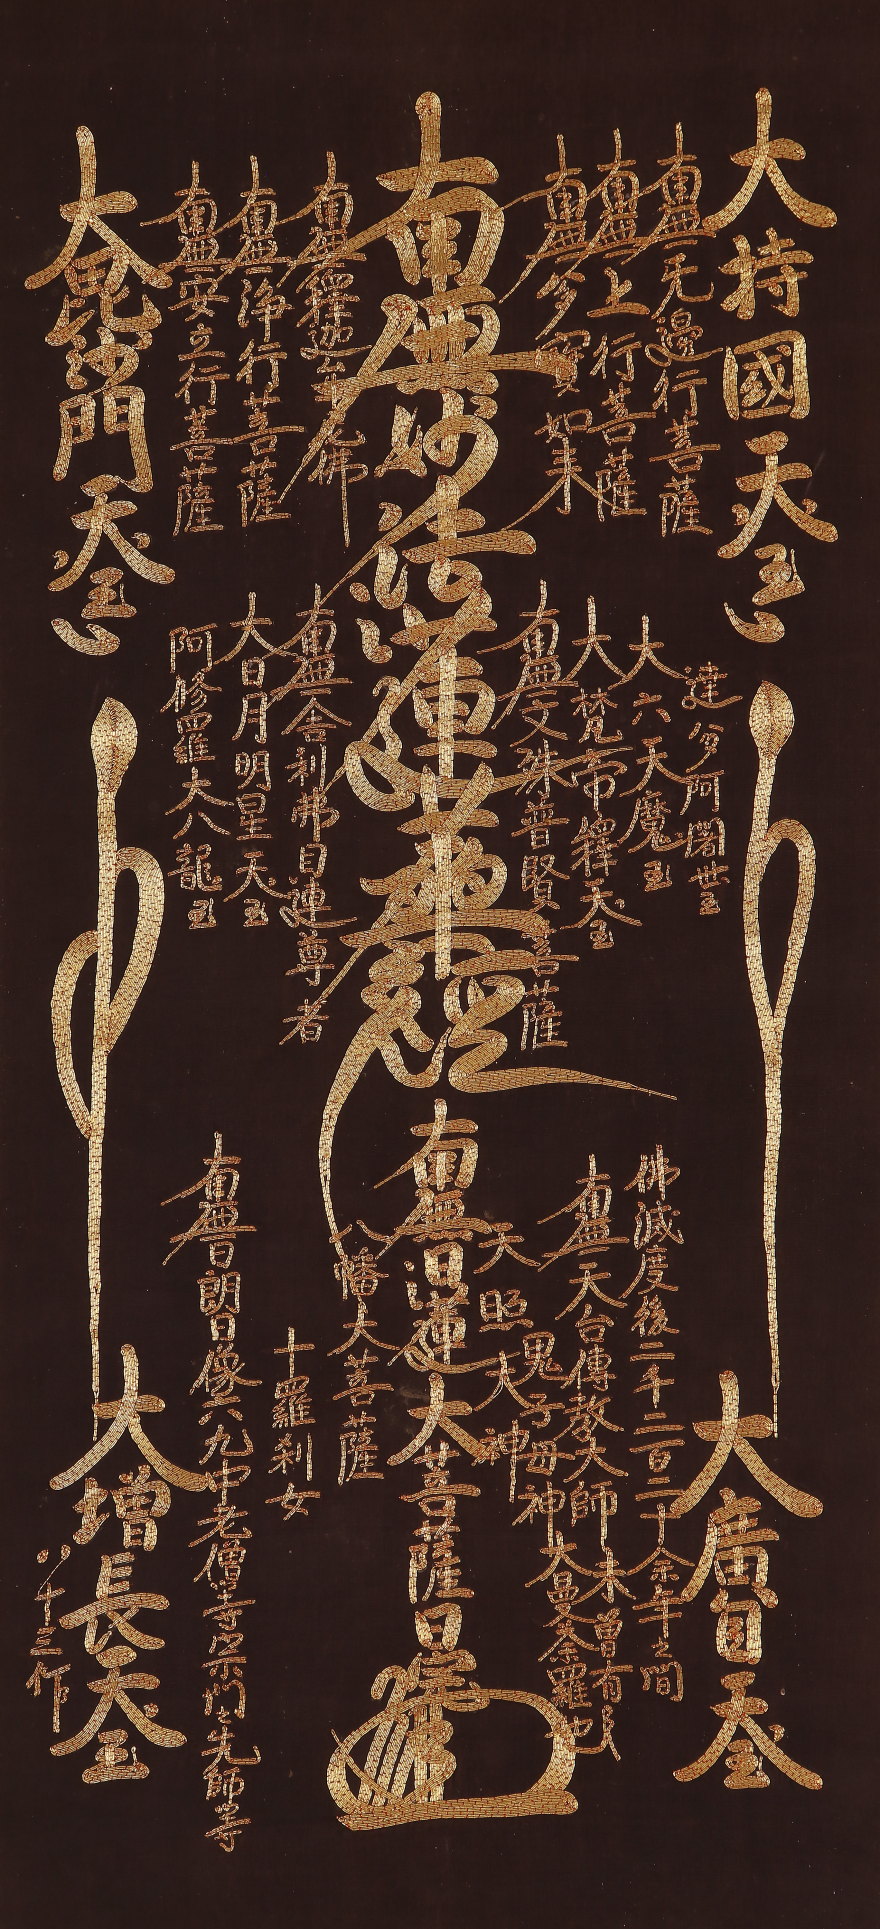 大持國天王
南無无邊行菩薩
南無上行菩薩
南無多寶如来
南無妙法蓮華經
南無釋迦牟尼佛
南無浄行菩薩
南無安立行菩薩
大毘沙門天王
達多阿闍世王
大六天魔王
大梵帝釋天王
南無文殊普賢菩薩
南無舎利弗目連尊者
大日月明星天王
阿修羅大八龍王
大廣目天王
佛滅度後二千二百二十余年之間
未曽有
大曼荼羅也
南無天台傳教大師
鬼子母神
天照大神
南無日蓮大菩薩
八幡大菩薩
十羅刹女
南無日朗日像六九中老僧等宗門七先師等
大増長天王
八十三作